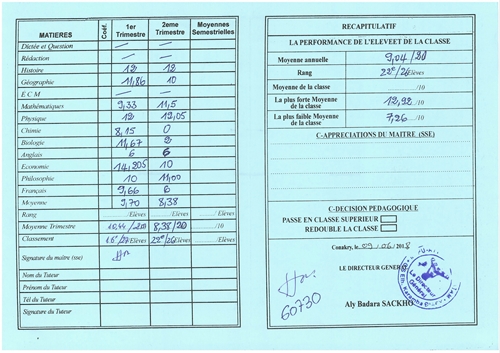 MATIERES Coéf. 1er Trimestre 2eme Trimestre Moyennes Semestrielles
Dictée et Question — —
Rédaction — —
Histoire 12 12
Géographie 11,86 10
E C M — —
Mathématiques 9,33 11,5
Physique 12 12,05
Chimie 8,15 0
Biologie 11,67 2
Anglais 6 6
Economie 14,205 10
Philosophie 10 11,00
Français 9,66 6
Moyenne 9,70 8,38
Rang /Elèves /Elèves /Elèves
Moyenne Trimestre 10,44/20 8,38/20 /10
Classement 16e/27Elèves 22e/26Elèves /Elèves
Signature du maître (sse)
Nom du Tuteur
Prénom du Tuteur
Tél du Tuteur
Signature du Tuteur
RECAPITULATIF
LA PERFORMANCE DE L'ELEVEET DE LA CLASSE
Moyenne annuelle 9,04/20
Rang 22e/26Elèves
Moyenne de la classe /10
La plus forte Moyenne de la classe 12,92/10
La plus faible Moyenne de la classe 7,26/10
C-APPRECIATIONS DU MAITRE (SSE)
C-DECISION PEDAGOGIQUE
PASSE EN CLASSE SUPERIEUR
REDOUBLE LA CLASSE
Conakry, le 09/06/2018
LE DIRECTEUR GENER
60730
Le Directeur Général
Aly Badara SACKHO